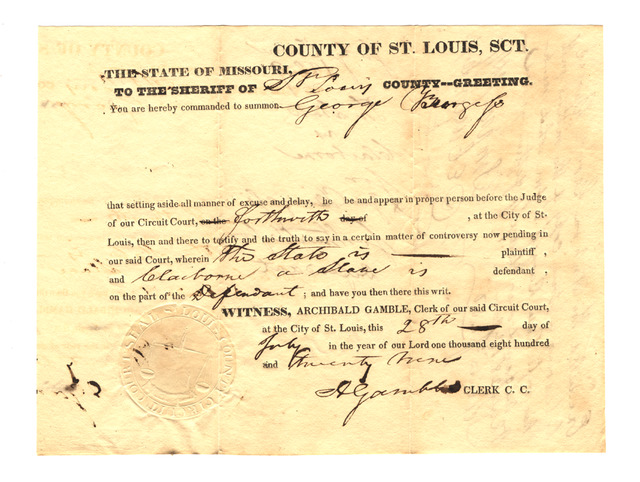 COUNTY OF ST. LOUIS, SCT.
THE STATE OF MISSOURI,
TO THE SHERIFF OF St Louis COUNTY--GREETING.
You are hereby commanded to summon George
that setting aside all manner of excuse and delay, he be and appear in proper person before the Judge
of our Circuit Court, on the forthwith day of , at the City of St.
Louis, then and there to testify and the truth to say in a certain matter of controversy now pending in
our said Court, wherein The State is plaintiff ,
and Claiborne a Slave is defendant .
on the part of the Defendant ; and have you then there this writ.
WITNESS, ARCHIBALD GAMBLE, Clerk of our said Circuit Court,
at the City of St. Louis, this 28th day of
July in the year of our Lord one thousand eight hundred
and twenty nine
A Gamble CLERK C. C.